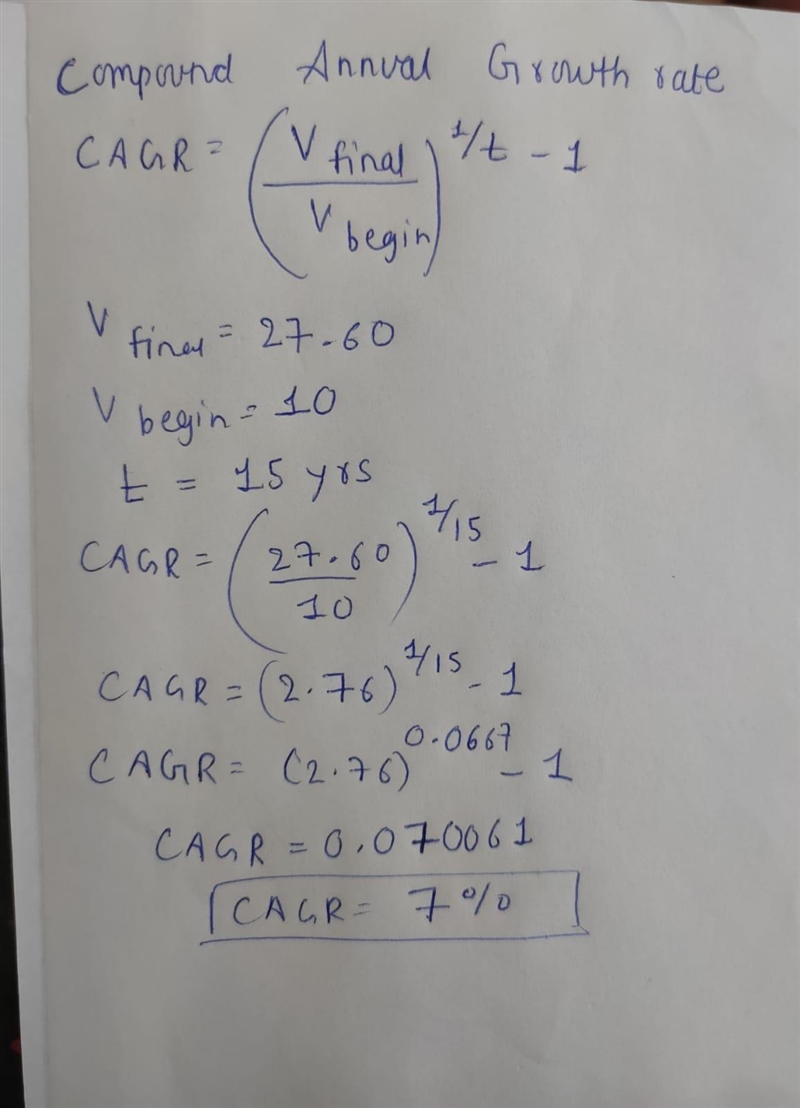 Compound Annual Growth rate
CAGR = (V final / V begin)^1/t - 1
V final = 27.60
V begin = 10
t = 15 yrs
CAGR = (27.60 / 10)^1/15 - 1
CAGR = (2.76)^1/15 - 1
CAGR = (2.76)^0.0667 - 1
CAGR = 0.070061
CAGR = 7%